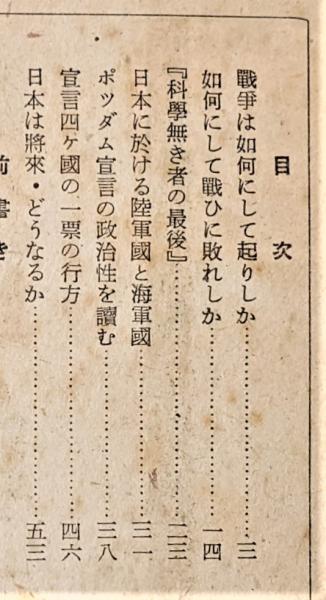 目次
戰爭は如何にして起りしか……………………三
如何にして戰ひに敗れしか……………………一四
『科學無き者の最後』……………………二三
日本に於ける陸軍國と海軍國……………………三一
ポツダム宣言の政治性を讀む……………………三八
宣言四ヶ國の一票の行方……………………四六
日本は將來・どうなるか……………………五三
前書き